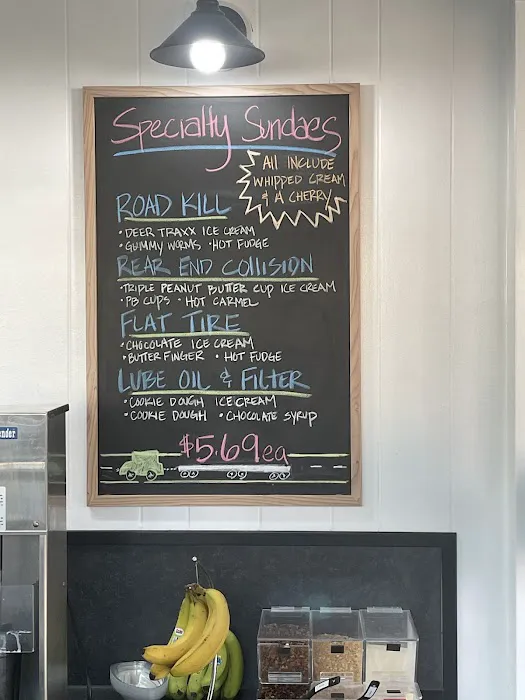 Specialty Sundaes
All INCLUDE
WHIPPED CREAM
& A CHERRY
ROAD KILL
• DEER TRAXX ICE CREAM
• GUMMY WORMS • HOT FUDGE
REAR END COllISION
• TRIPLE PEANUT BUTTER CUP ICE CREAM
• PB CUPS • HOT CARMEL
FLAT TIRE
• CHOCOLATE ICE CREAM
• BUTTERFINGER • HOT FUDGE
LUBE OIL & FILTER
• COOKIE DOUGH ICE CREAM
• COOKIE DOUGH • CHOCOLATE SYRUP
$5.69 ea